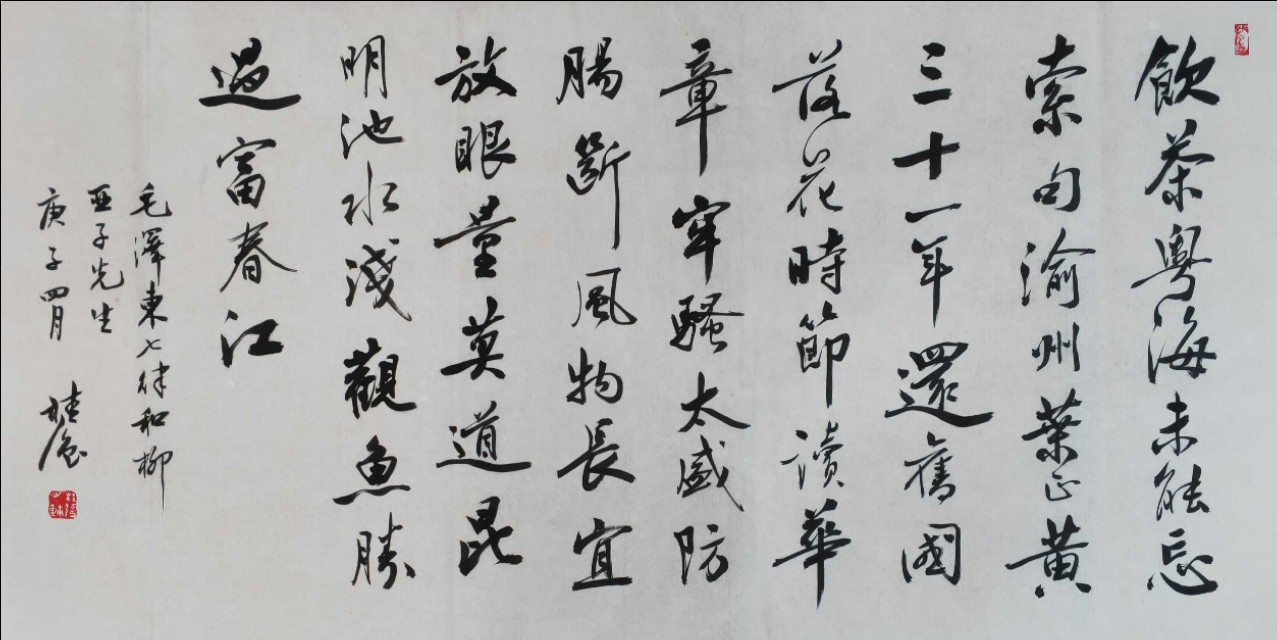 飲茶粵海未能忘
索句渝州葉正黃
三十一年還舊國
落花時節讀華
章牢騷太盛防
腸斷風物長宜
放眼量莫道昆
明池水淺觀魚勝
過富春江
毛澤東七律和柳
亞子先生
庚子四月